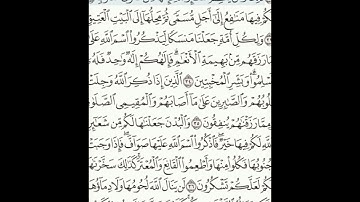 كُمْ فِيهَا مَنَٰفِعُ إِلَىٰٓ أَجَلٍ مُّسَمًّى ثُمَّ مَحِلُّهَآ إِلَى ٱلْبَيْتِ ٱلْعَتِيقِ
٣٣ وَلِكُلِّ أُمَّةٍ جَعَلْنَا مَنسَكًا لِّيَذْكُرُوا۟ ٱسْمَ ٱللَّهِ عَلَ
مَا رَزَقَهُم مِّنۢ بَهِيمَةِ ٱلْأَنْعَٰمِ ۗ فَإِلَٰهُكُمْ إِلَٰهٌ وَٰحِدٌ فَلَهُ
سْلِمُوا۟ ۗ وَبَشِّرِ ٱلْمُخْبِتِينَ ٣٤ ٱلَّذِينَ إِذَا ذُكِرَ ٱللَّهُ وَجِلَتْ
لُوبُهُمْ وَٱلصَّٰبِرِينَ عَلَىٰ مَآ أَصَابَهُمْ وَٱلْمُقِيمِى ٱلصَّلَوٰ
مِمَّا رَزَقْنَٰهُمْ يُنفِقُونَ ٣٥ وَٱلْبُدْنَ جَعَلْنَٰهَا لَكُم مِّن شَعَٰٓئِرِ
للَّهِ لَكُمْ فِيهَا خَيْرٌ ۖ فَٱذْكُرُوا۟ ٱسْمَ ٱللَّهِ عَلَيْهَا صَوَآفَّ ۖ فَإِذَا وَجَبَتْ
جُنُوبُهَا فَكُلُوا۟ مِنْهَا وَأَطْعِمُوا۟ ٱلْقَانِعَ وَٱلْمُعْتَرَّ ۚ كَذَٰلِكَ سَخَّرْنَٰهَا
كُمْ لَعَلَّكُمْ تَشْكُرُونَ ٣٦ لَن يَنَالَ ٱللَّهَ لُحُومُهَا وَلَا دِمَآؤُهَا